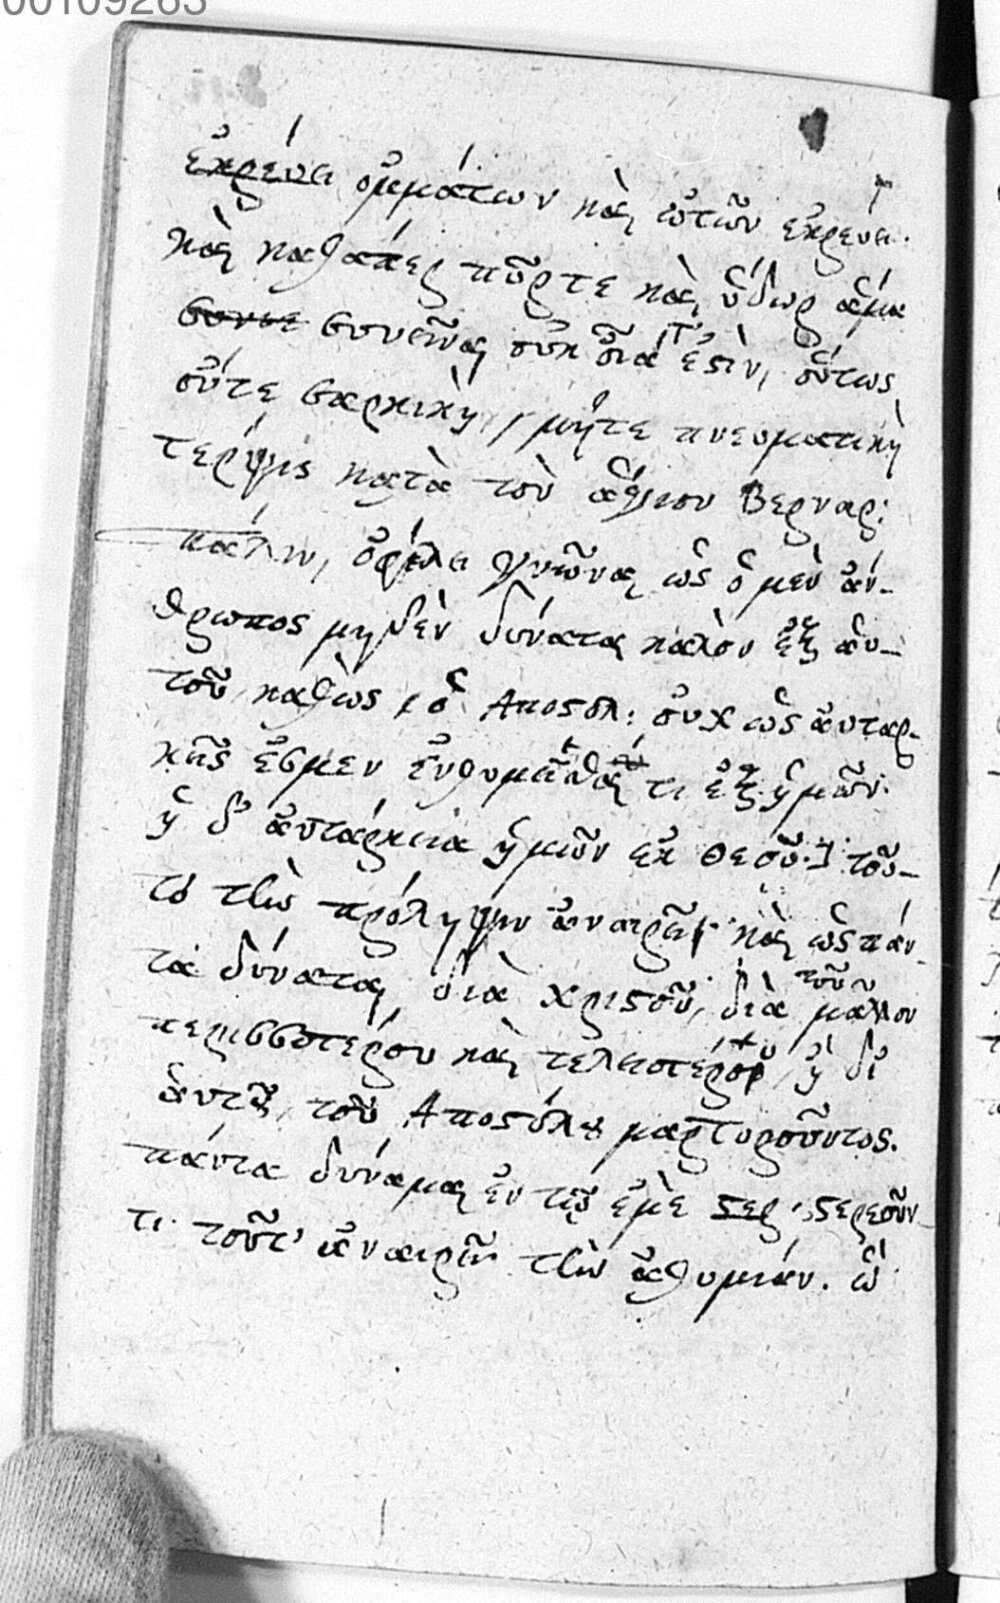 00109263
ἐκρέυει ὀμμάτων καὶ ὠτῶν ἐκρέυει.
καὶ καθάπερ πῦρ τε καὶ ὕδωρ ἅμα
συνιε συνεῖναι οὐκ οἷά τ' ἐστὶν, οὕτως
οὔτε σαρκικὴ, μήτε πνευματικὴ
τέρψις κατὰ τὸν ἅγιον Βερναρ:
πάλιν, ὀφείλει γνῶναι ὡς ὁ μὲν ἄν-
θρωπος μηδὲν δύναται καλὸν ἐξ ἁυ-
τοῦ, καθὼς, ὁ Αποστολ: οὐχ ὡς ἀυταρ-
κῆς ἐσμεν ἐνθυμεῖσθαί τι ἐξ ἡμῶν.
ἡ δ' ἀυτάρκεια ἡμῶν ἐκ Θεοῦ. τοῦ-
το τὴν πρόληψιν ἀναιρεῖ. καὶ ὡς πάν-
τα δύναται διὰ Χριστοῦ, διὰ τοῦ μαλλον
περισσοτέρου καὶ τελειοτέρου, ἢ δι
ἁυτοῦ, τοῦ Αποστόλου μαρτυροῦντος.
πάντα δύναμαι ἐν τῷ ἐμὲ στερ στερεοῦν-
τι. τοῦτ' ἀναιρεῖ τὴν ἀθυμίαν. ὦ